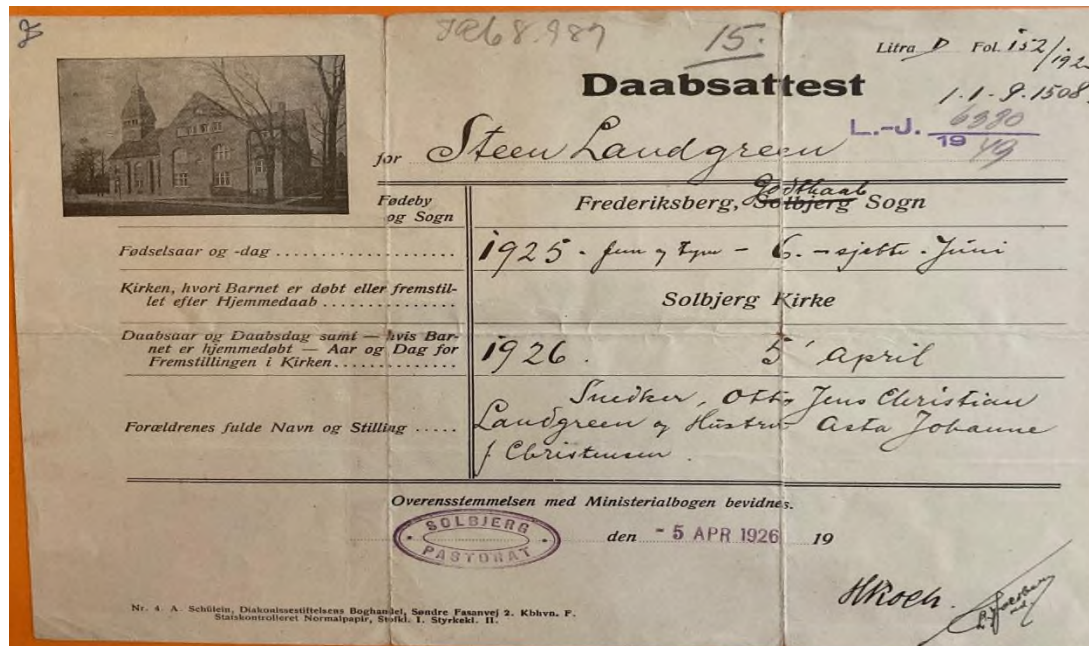 15.
Litra D Fol. 152/192
Daabsattest
1.-1.-9.1508
L.-J. 6380
19 49
for Steen Landgreen
Fødeby og Sogn
Frederiksberg, Godthaab Solbjerg Sogn
Fødselsaar og -dag
1925 - fem og tyve - 6. - sjette - Juni
Kirken, hvori Barnet er døbt eller fremstil-
let efter Hjemmedaab
Solbjerg Kirke
Daabsaar og Daabsdag samt — hvis Bar-
net er hjemmedøbt — Aar og Dag for
Fremstillingen i Kirken
1926. 5' April
Forældrenes fulde Navn og Stilling
Snedker, Otto Jens Christian
Landgreen og Hustru Asta Johanne
f Christensen.
Overensstemmelsen med Ministerialbogen bevidnes.
SOLBJERG
PASTORAT
den - 5 APR 1926 19
HKoch.
Nr. 4. A. Schülein, Diakonissestiftelsens Boghandel, Søndre Fasanvej 2. Kbhvn. F.
Statskontrolleret Normalpapir, Stofkl. I. Styrkekl. II.